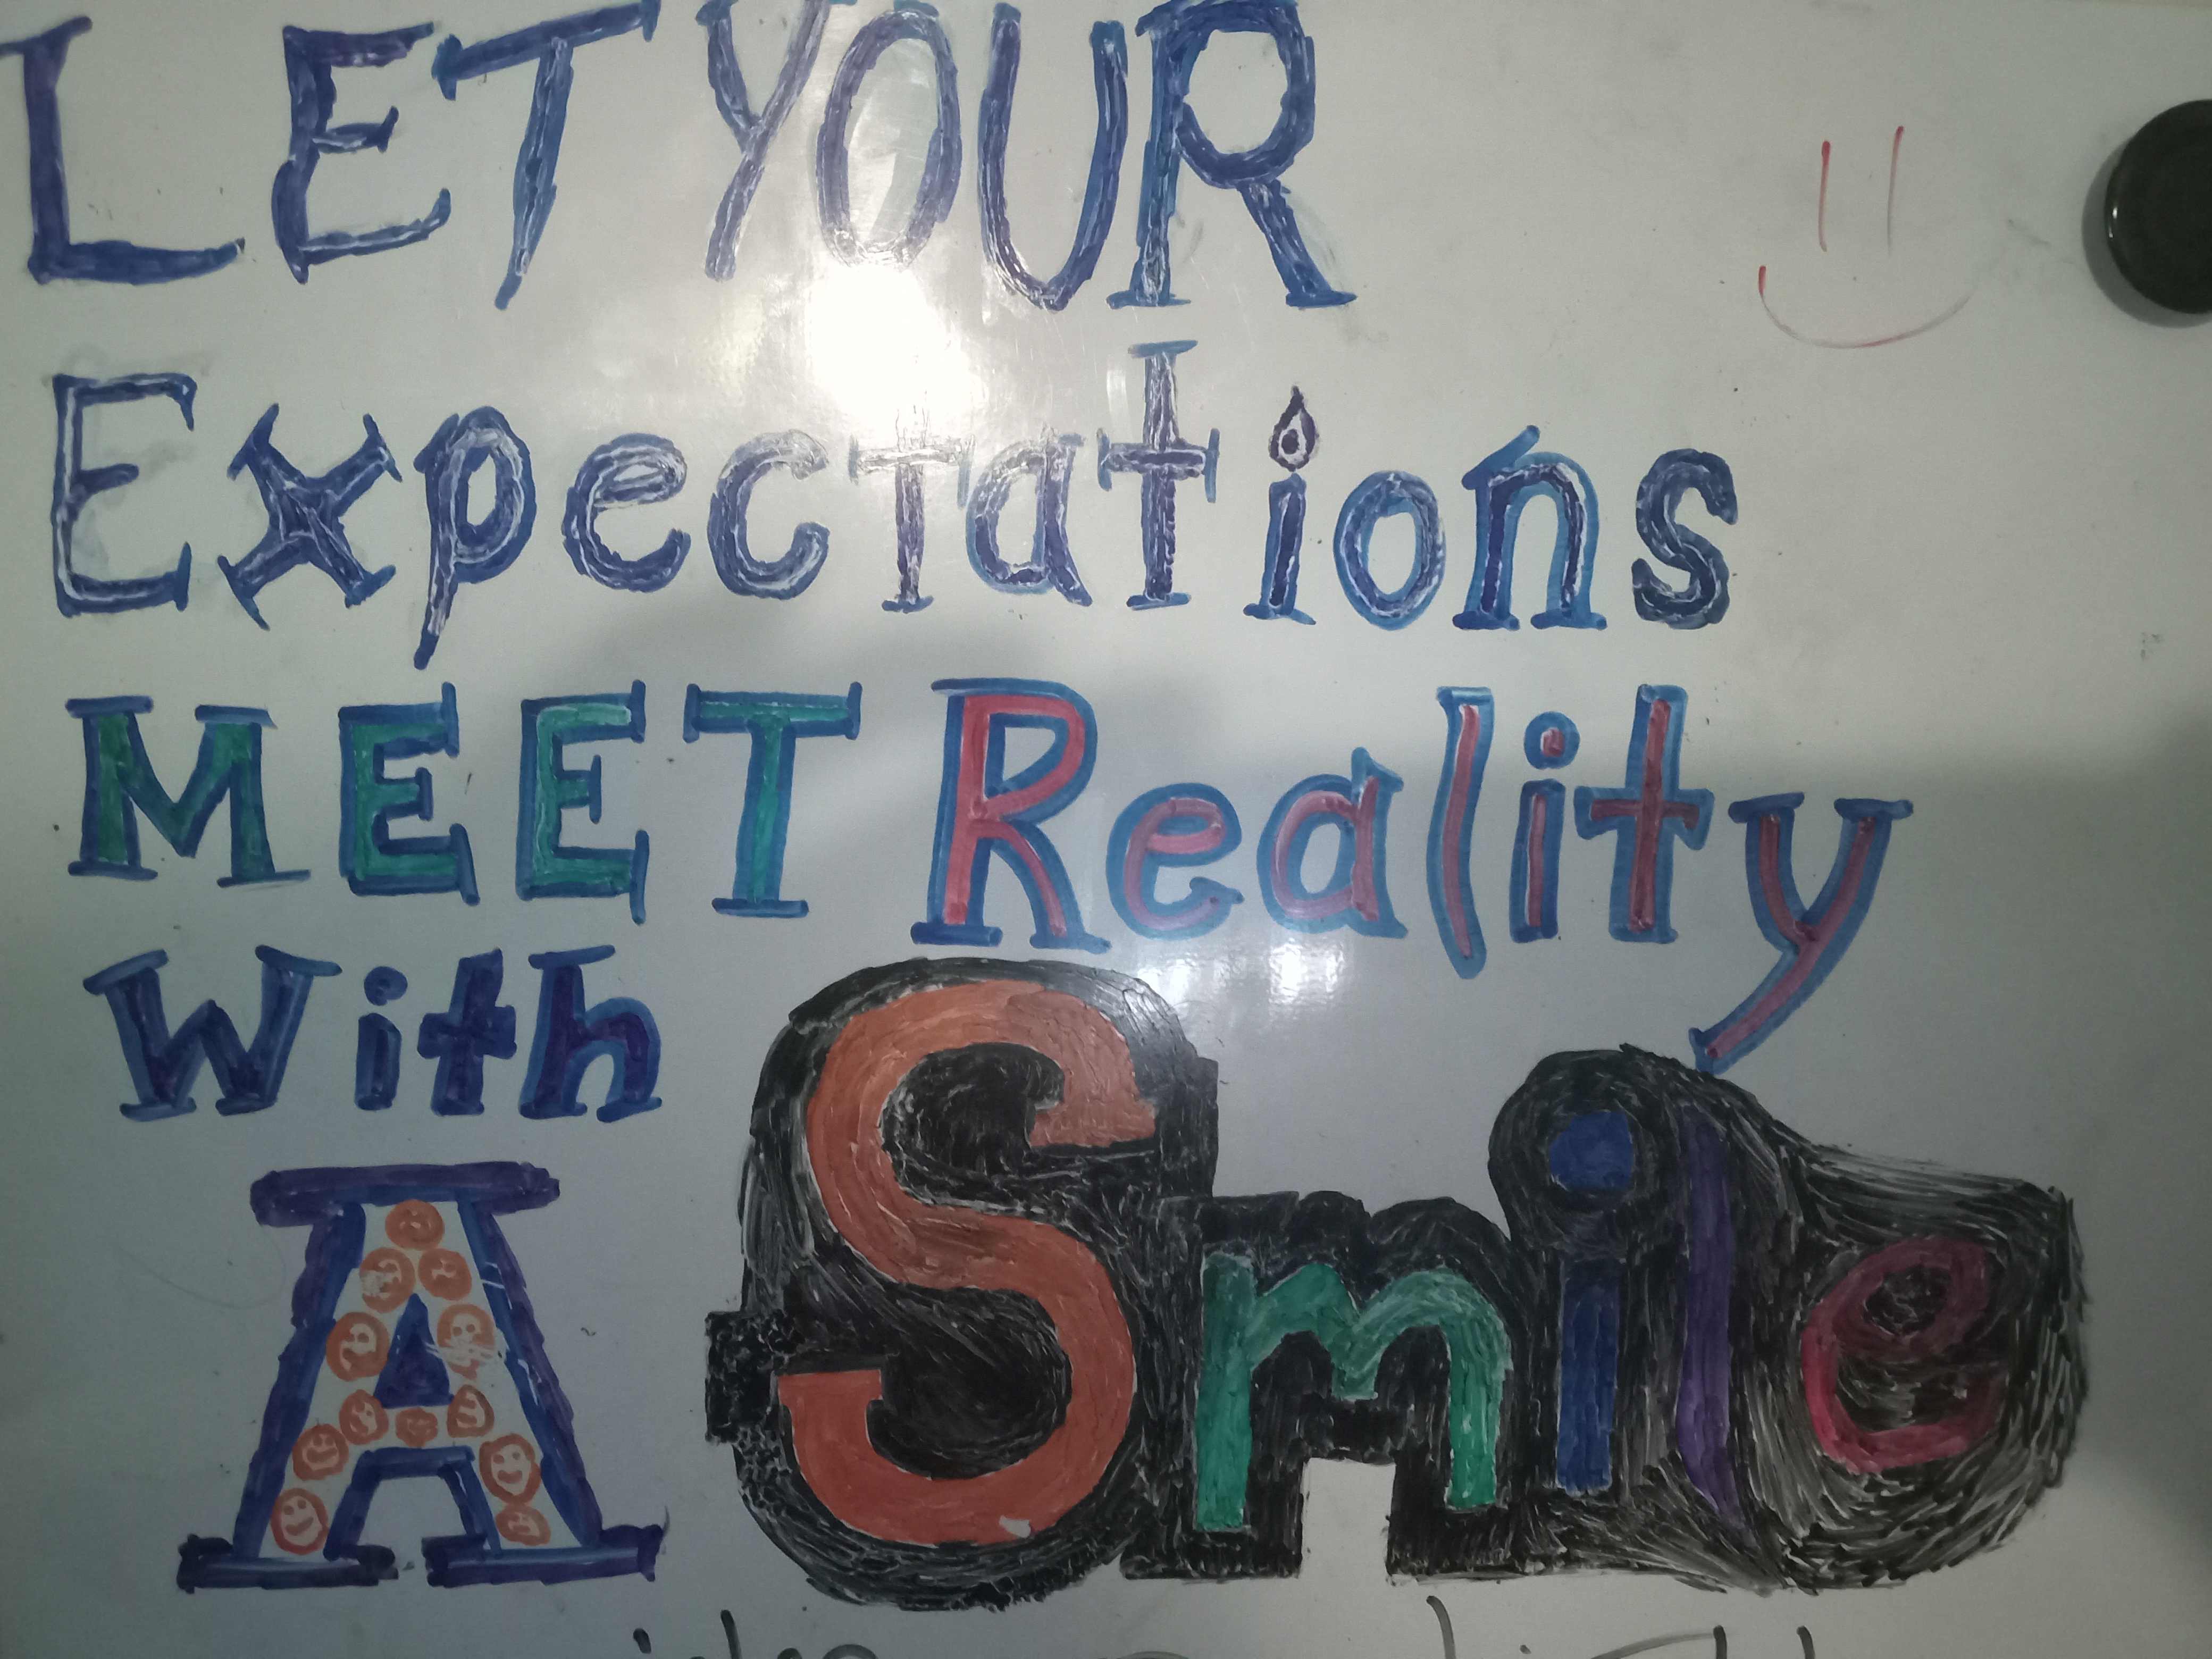 LET YOUR
Expectations
MEET Reality
With
A Smile